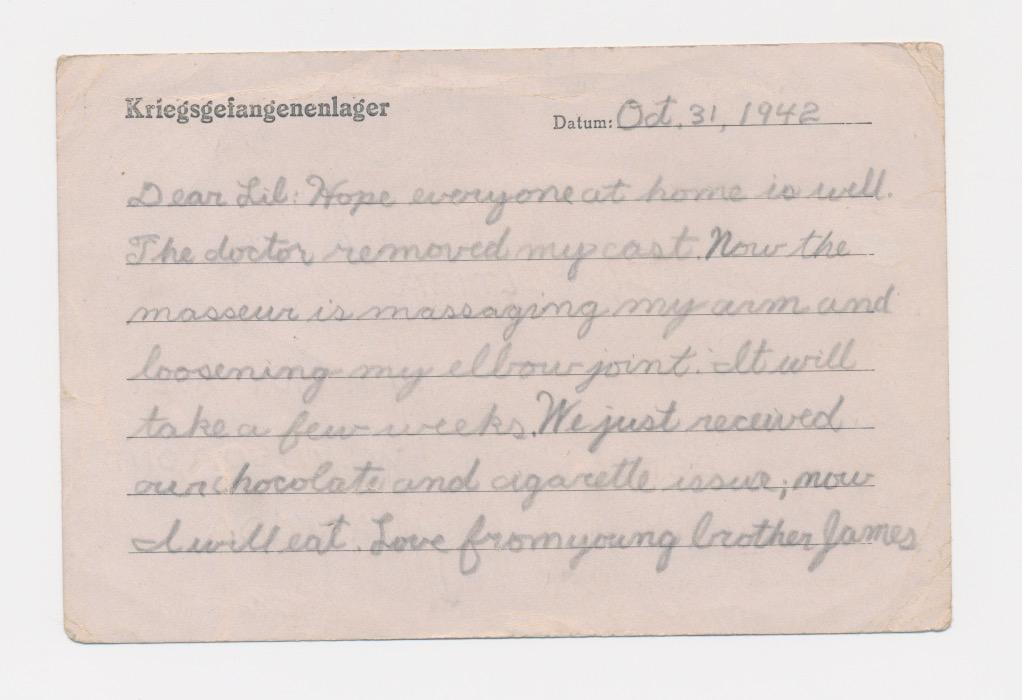 Kriegsgefangenenlager
Datum: Oct. 31, 1942
Dear Lil: Hope everyone at home is well.
The doctor removed my cast. Now the
masseur is massaging my arm and
loosening my elbow joint. It will
take a few weeks. We just received
our chocolate and cigarette issue; now
I will eat. Love from young brother James